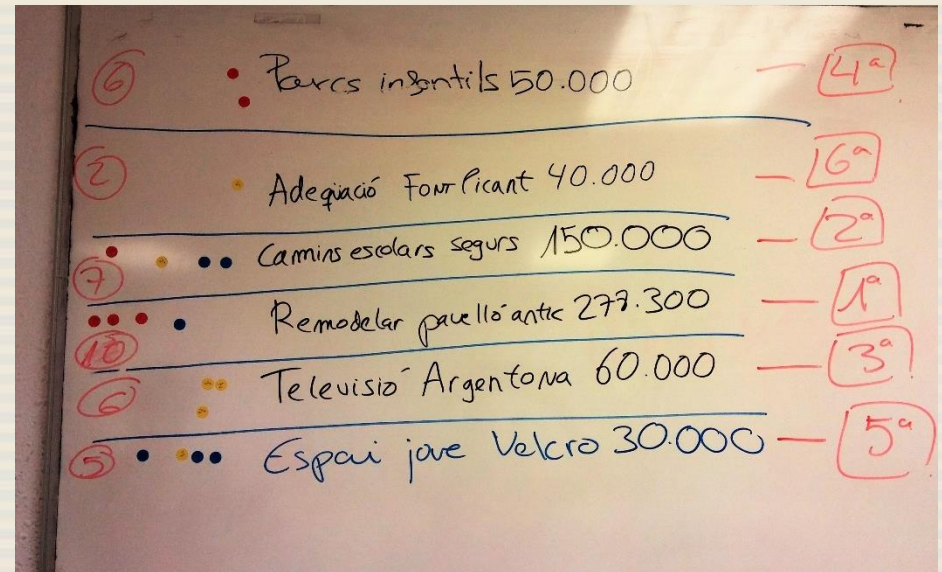 6 Parcs infantils 50.000 — 4ª
2 Adeqüació Font Picant 40.000 — 6ª
7 Camins escolars segurs 150.000 — 2ª
10 Remodelar pavelló antic 277.300 — 1ª
6 Televisió Argentona 60.000 — 3ª
5 Espai jove Velcro 30.000 — 5ª